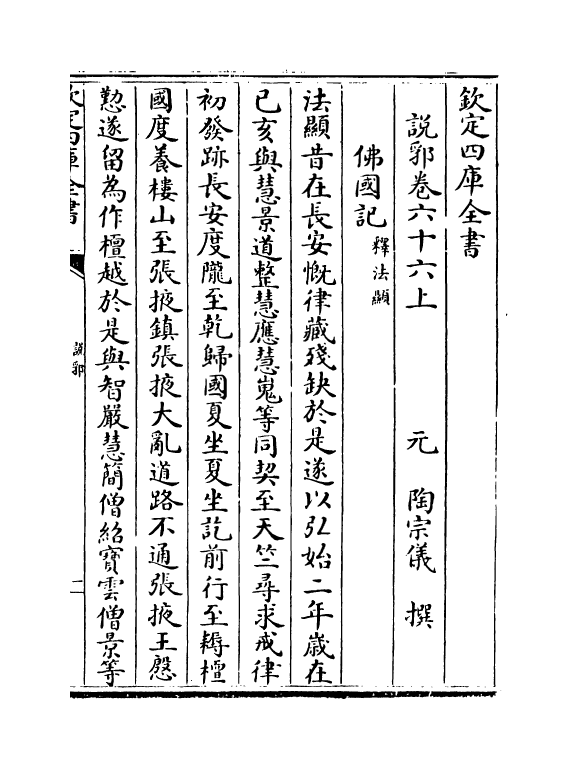 欽定四庫全書
説郛卷六十六上　元　陶宗儀　撰
佛國記釋法顯
法顯昔在長安慨律藏殘缺於是遂以弘始二年嵗在
己亥與慧景道整慧應慧嵬等同契至天竺尋求戒律
初發跡長安度隴至乾歸國夏坐夏坐訖前行至耨檀
國度養樓山至張掖鎮張掖大亂道路不通張掖王慇
懃遂留為作檀越於是與智嚴慧簡僧紹寶雲僧景等
欽定四庫全書
說郛
二